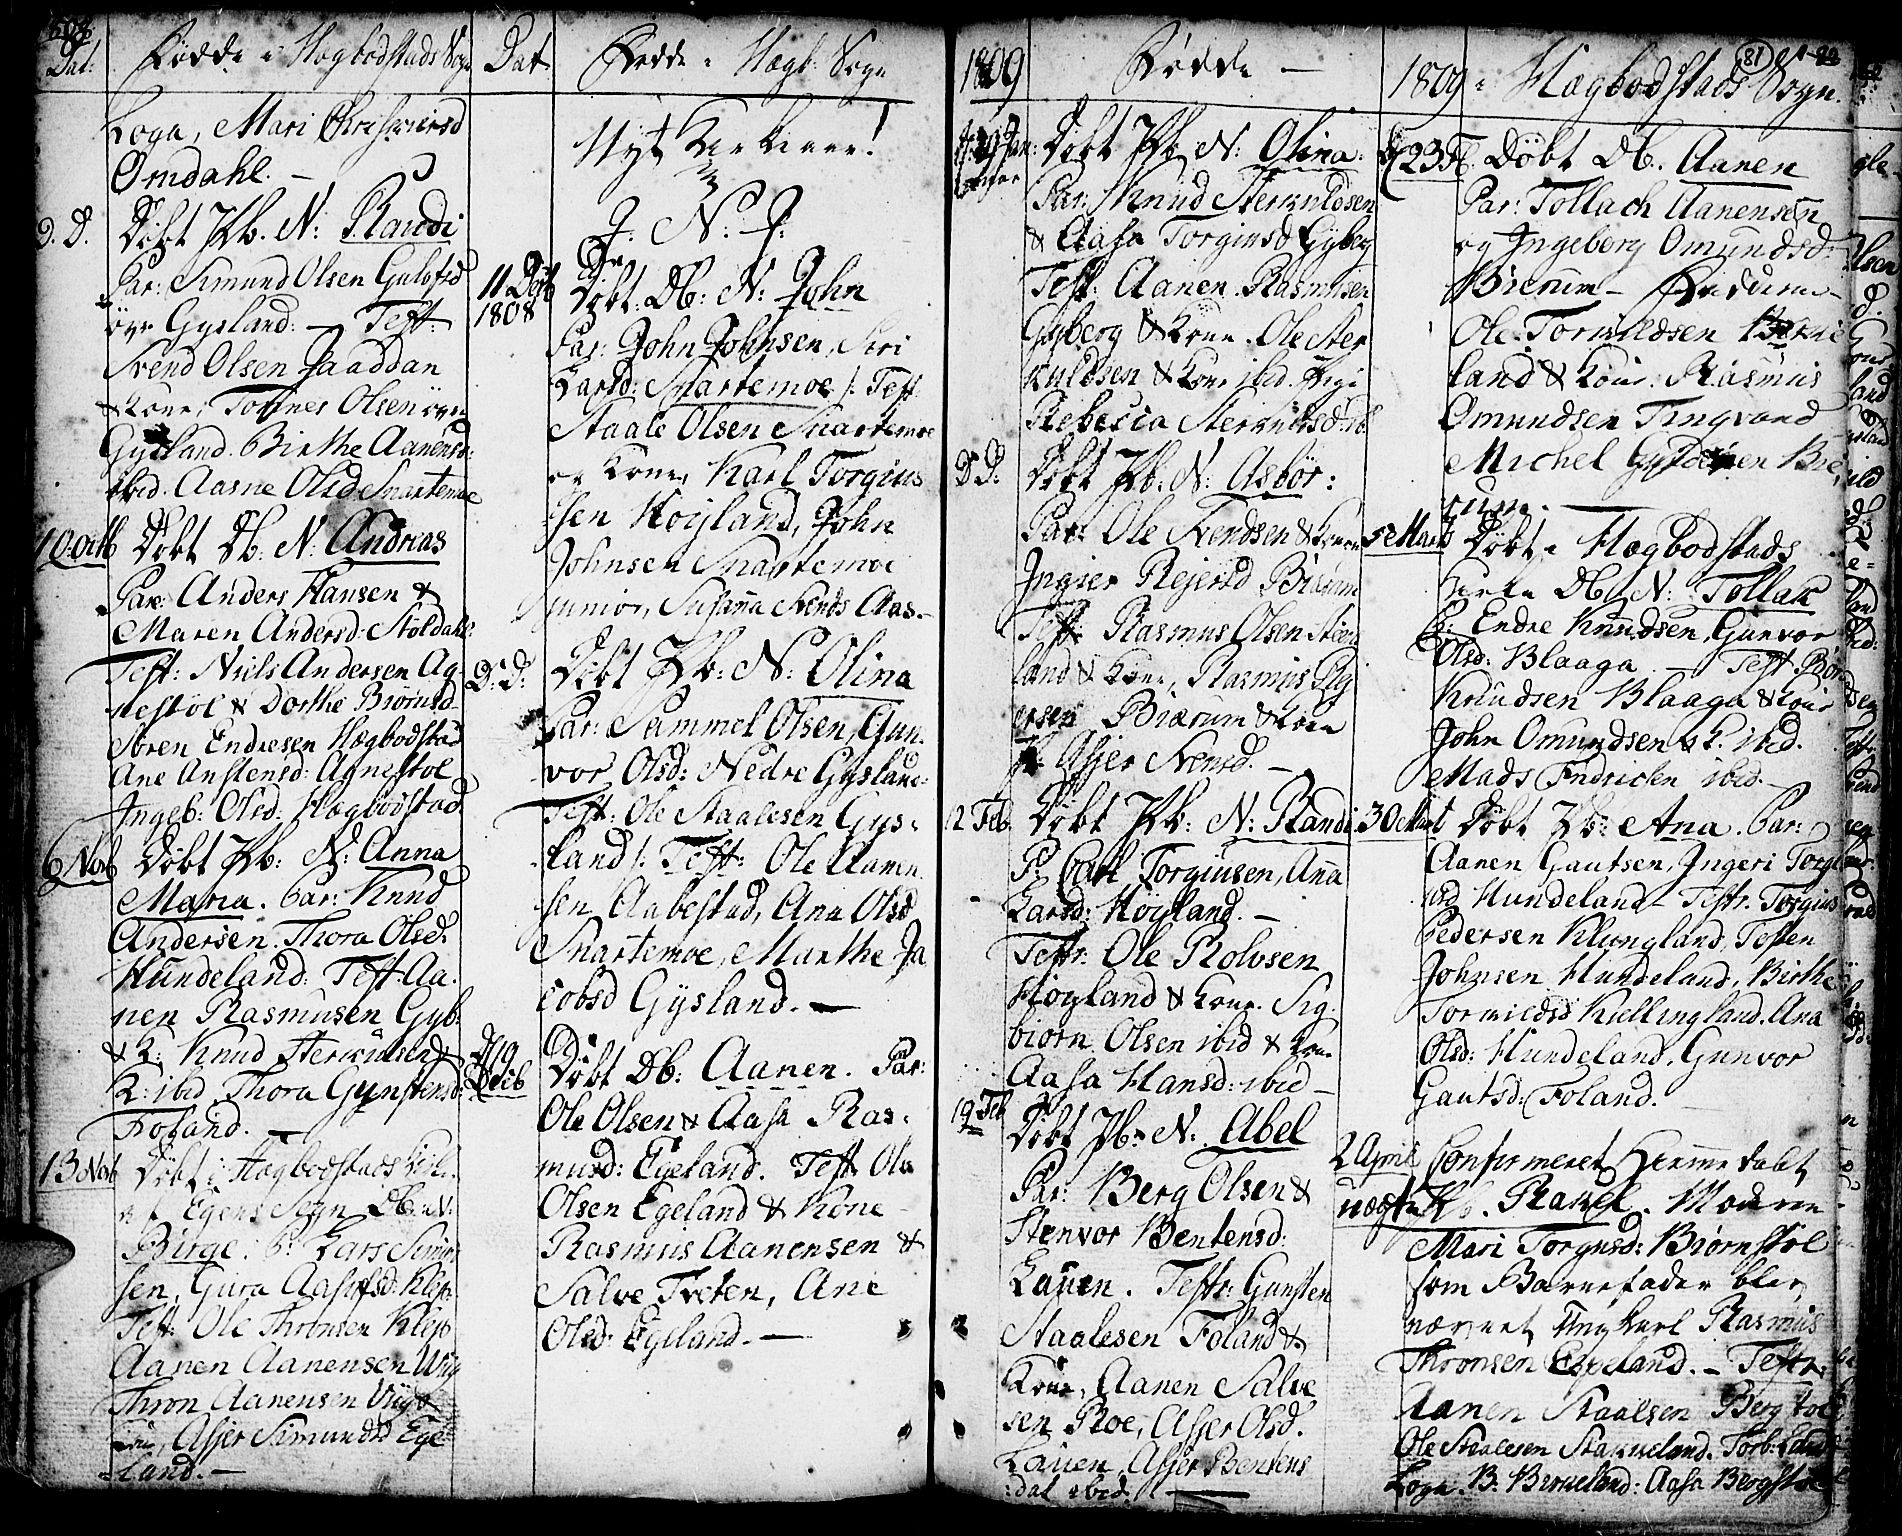 1808
Dat: Fødde i Hægbodstads Sogn
Loga, Mari
Omdahl. —
D. D. Døbt Pb. N: Randi
Par: Simund Olsen Gulofsd
övr Gysland: — Test:
Svend Olsen Jaaddan
& Kone, Tønnes Olsen övr
Gysland. Birthe Aanensd:
ibid. Aasne Olsd Snartemoe
10 Octb Døbt Db: N: Andrias
Par: Anders Hansen &
Maren Andersd: Støldahl
Test: Niels Andersen Ag-
nestøl & Dorthe Biørnsd
Søren Endresen Hægbodstad
Ane Anstensd: Agnestøl
Ingeb: Olsd: Hægbodstad
6 Nob Døbt Pb: N: Anna
Maria. Par: Knud
Andersen. Thora Olsd:
Hundeland: Test Aa-
nen Rasmusen Gyb:
& K: Knud Sterkulsen &
K: ibid. Thora Gunstensd:
Foland. —
13 Nob Døbt i Hægbodstads Kirke
af Egens Sogn Db. N:
Birge: P: Lars Simon-
sen, Gura Aasulfsd: Klep:
Test: Ole Thronsen Klep
Aanen Aanensen Wiig
Thron Aanensen Viig &
Kone, Assjer Simundsd Ege-
land. —
Dat Fødde i Hægb: Sogn
Nyt Kirke aar!
J. N. J.
11 Decb 1808 Døbt Db: N: John
Par: John Johnsen, Siri
Larsd: Snartemoe /: Test
Staale Olsen Snartemoe
og Kone, Karl Torgius
sen Høyland, John
Johnsen Snartemoe
junior, Susanna Svends Aas-
D: D: Døbt Pb: N: Olina
Par: Sammel Olsen, Gun-
vor Olsd: Nedre Gysland:
Test: Ole Staalesen Gys-
land /: Test: Ole Aanen
sen Aabestad, Ana Olsd
Snartemoe, Marthe Ja
cobsd Gysland. —
d 19 Decb Døbt Db: Aanen. Par:
Ole Olsen & Aasa Ras-
musd: Egeland. Test Ole
Olsen Egeland & Kone
Rasmus Aanensen &
Salve Tveten, Ane
Olsd: Egeland. —
1809 Fødde —
Døbt Pb. N: Olina:
Par: Knud Sterkuldsen
& Aasa Torginsd Gyberg
Test: Aanen Rasmusen
Gyberg & Kone. Ole Ster
kuldsen & Kone ibid.
Rebecca Sterkuldsd: ib
D D. Døbt Pb: N: Asbör:
Par: Ole Svendsen & Kone
Ingier Rejersd Birum
Test: Rasmus Olsen
land & Kone, Rasmus Rej
ersen Biærum & Kone
Assjer Svensd. —
12 Feb Døbt Pb: N: Randi
P: Carl Torgiusen, Anna
Larsd: Høyland. —
Testr: Ole Rolvsen
Høyland & Kone. Sig-
biørn Olsen ibid & Kone
Aasa Hansd: ibid —
19 Feb Døbt Pb: N: Abel
Par: Berg Olsen &
Stenvor Bentensd:
Lauen. Testr: Gunsten
Staalesen Foland &
Kone, Aanen Salve
sen Roe, Assjer Olsd.
Lauen, Assjer Bentens
dat ibid. —
81
1809 i Hægbodstads Sogn.
23 F. Døbt Db. Aanen
Par: Tollach Aanensen
og Ingeborg Omundsd:
Bierum — Fadderne
Ole Torkildsen
land & Kone. Rasmus
Omundsen Tingvand
Michel Gydesen Bie
rum. —
5 Marts Døbt i Hægbodstads
Kirke Db: N: Tollak
P: Endre Knudsen, Gunvor
Olsd: Blaaga — Test Bør
Knudsen Blaaga & Kone
John Omundsen & K. ibid.
Mads Endriesen ibid. —
30 Mart Døbt Pb: Ana. Par:
Aanen Gautsen, Ingeri Torge
ibd Hundeland — Testr. Torgius
Pedersen Klungland, Testen
Johnsen Hundeland, Birthe
Tormodsd Kullingland. Ana
Olsd: Hundeland, Gunvor
Gautsd: Foland.
2 April Confirmeret Hiemmedøbt
uægte Pb. Rakel. Moderen
Mari Torgusd: Biørnstøl
som Barnefader blev
nævnet Ungkarl Rasmus
Thronsen Espeland. — Testr:
Aanen Staalsen Bergstøl
Ole Staalesen Stakkeland. Torb: Lands
Loga. B. Birkeland: Aasa Bergstøl